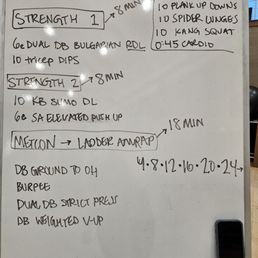 STRENGTH 1 → 8 MIN
6e DUAL DB BULGARIAN RDL
10 tricep DIPS
10 PLANK UP DOWNS
10 SPIDER LUNGES
10 KANG SQUAT
0:45 CARDIO
STRENGTH 2 → 8 MIN
10 KB SUMO DL
6e SA ELEVATED PUSH UP
METCON → LADDER AMRAP → 18 MIN
DB GROUND TO OH
BURPEE
DUAL DB STRICT PRESS
DB WEIGHTED V-UP
4·8·12·16·20·24→